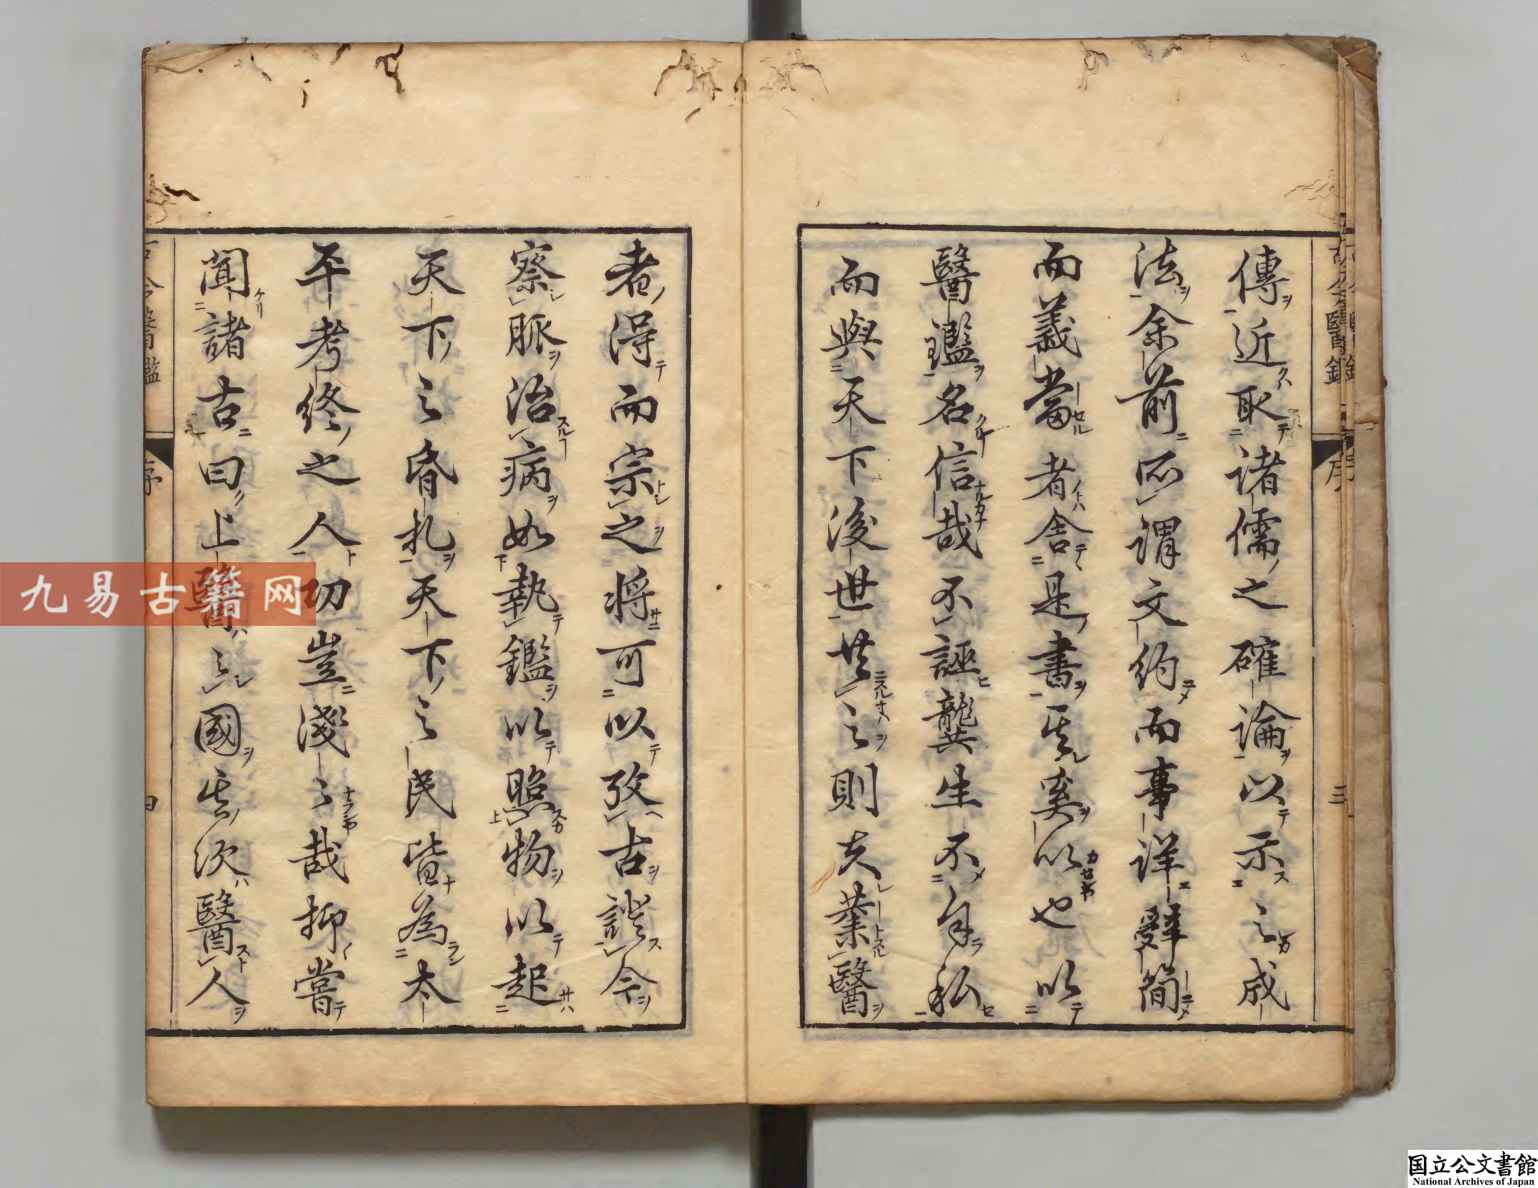 傳近取諸儒之確論以示之成
法余前所謂文約而事詳辭簡
而義當者舍是書其奚以也以
醫鑑名信哉不誣龔生不自私
而與天下後世共之則夫業醫
者得而宗之將可以攷古證今
察脈治病如執鑑以照物以起
天下之昏札天下之民皆為太
平考終之人功豈淺之哉抑嘗
聞諸古曰上醫醫國其次醫人
古今醫鑑
序
三
四
九易古籍网
国立公文書館
National Archives of Japan